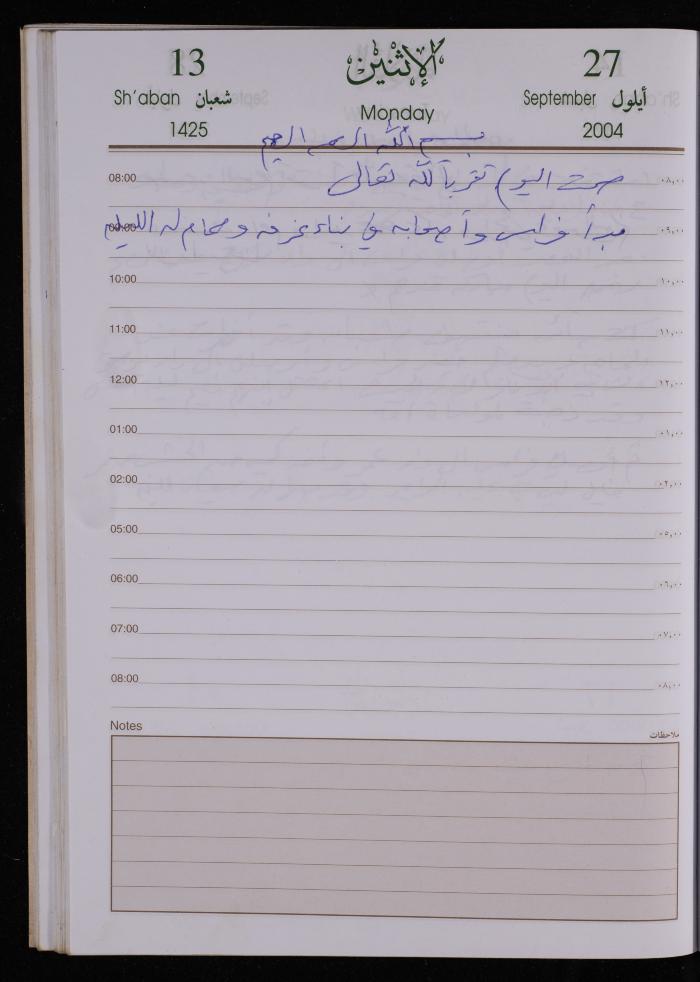 13 الإثنين 27
Sh'aban شعبان Monday September أيلول
1425 2004
بسم الله الرحمن الرحيم
08:00 صمت اليوم تقرباً لله تعالى ٠٨,٠٠
09:00 بدأ فراس وأصحابه في بناء غرفة وحمام له الليلة ٠٩,٠٠
10:00 ١٠,٠٠
11:00 ١١,٠٠
12:00 ١٢,٠٠
01:00 ٠١,٠٠
02:00 ٠٢,٠٠
05:00 ٠٥,٠٠
06:00 ٠٦,٠٠
07:00 ٠٧,٠٠
08:00 ٠٨,٠٠
Notes ملاحظات